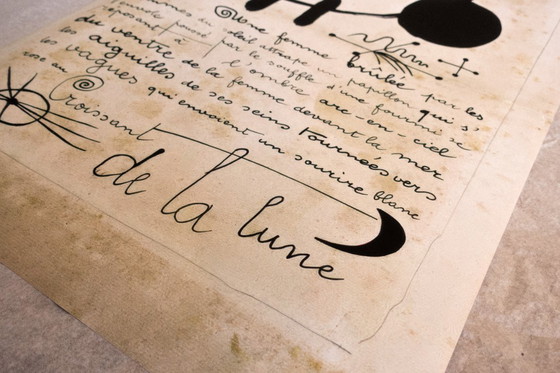 Une femme brulée par les
mmes du soleil attrape un papillon qui s'
poussé par le souffle d'une fourmi se
reposant à l'ombre arc-en-ciel
du ventre de la femme devant la mer
les aiguilles de ses seins tournées vers
les vagues qui envoient un sourire blanc
rose au Croissant
de la lune